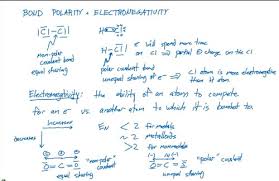 BOND POLARITY + ELECTRONEGATIVITY
|Cl - Cl|
non-polar
covalent bond
equal sharing
H - Cl|
e⁻ will spend more time
on Cl ⇒ partial ⊖ charge on the Cl
polar covalent bond
unequal sharing of e⁻ ⇒ Cl atom is more electronegative
than H atom.
Electronegativity: the ability of an atom to compete
for an e⁻ vs. another atom to which it is bonded to.
increases
decreases
EN < 2 for metals
~ 2 metalloids
> 2 for nonmetals
O = C = O
"non-polar"
covalent
equal sharing
O = C = O
"polar" covalent
unequal sharing